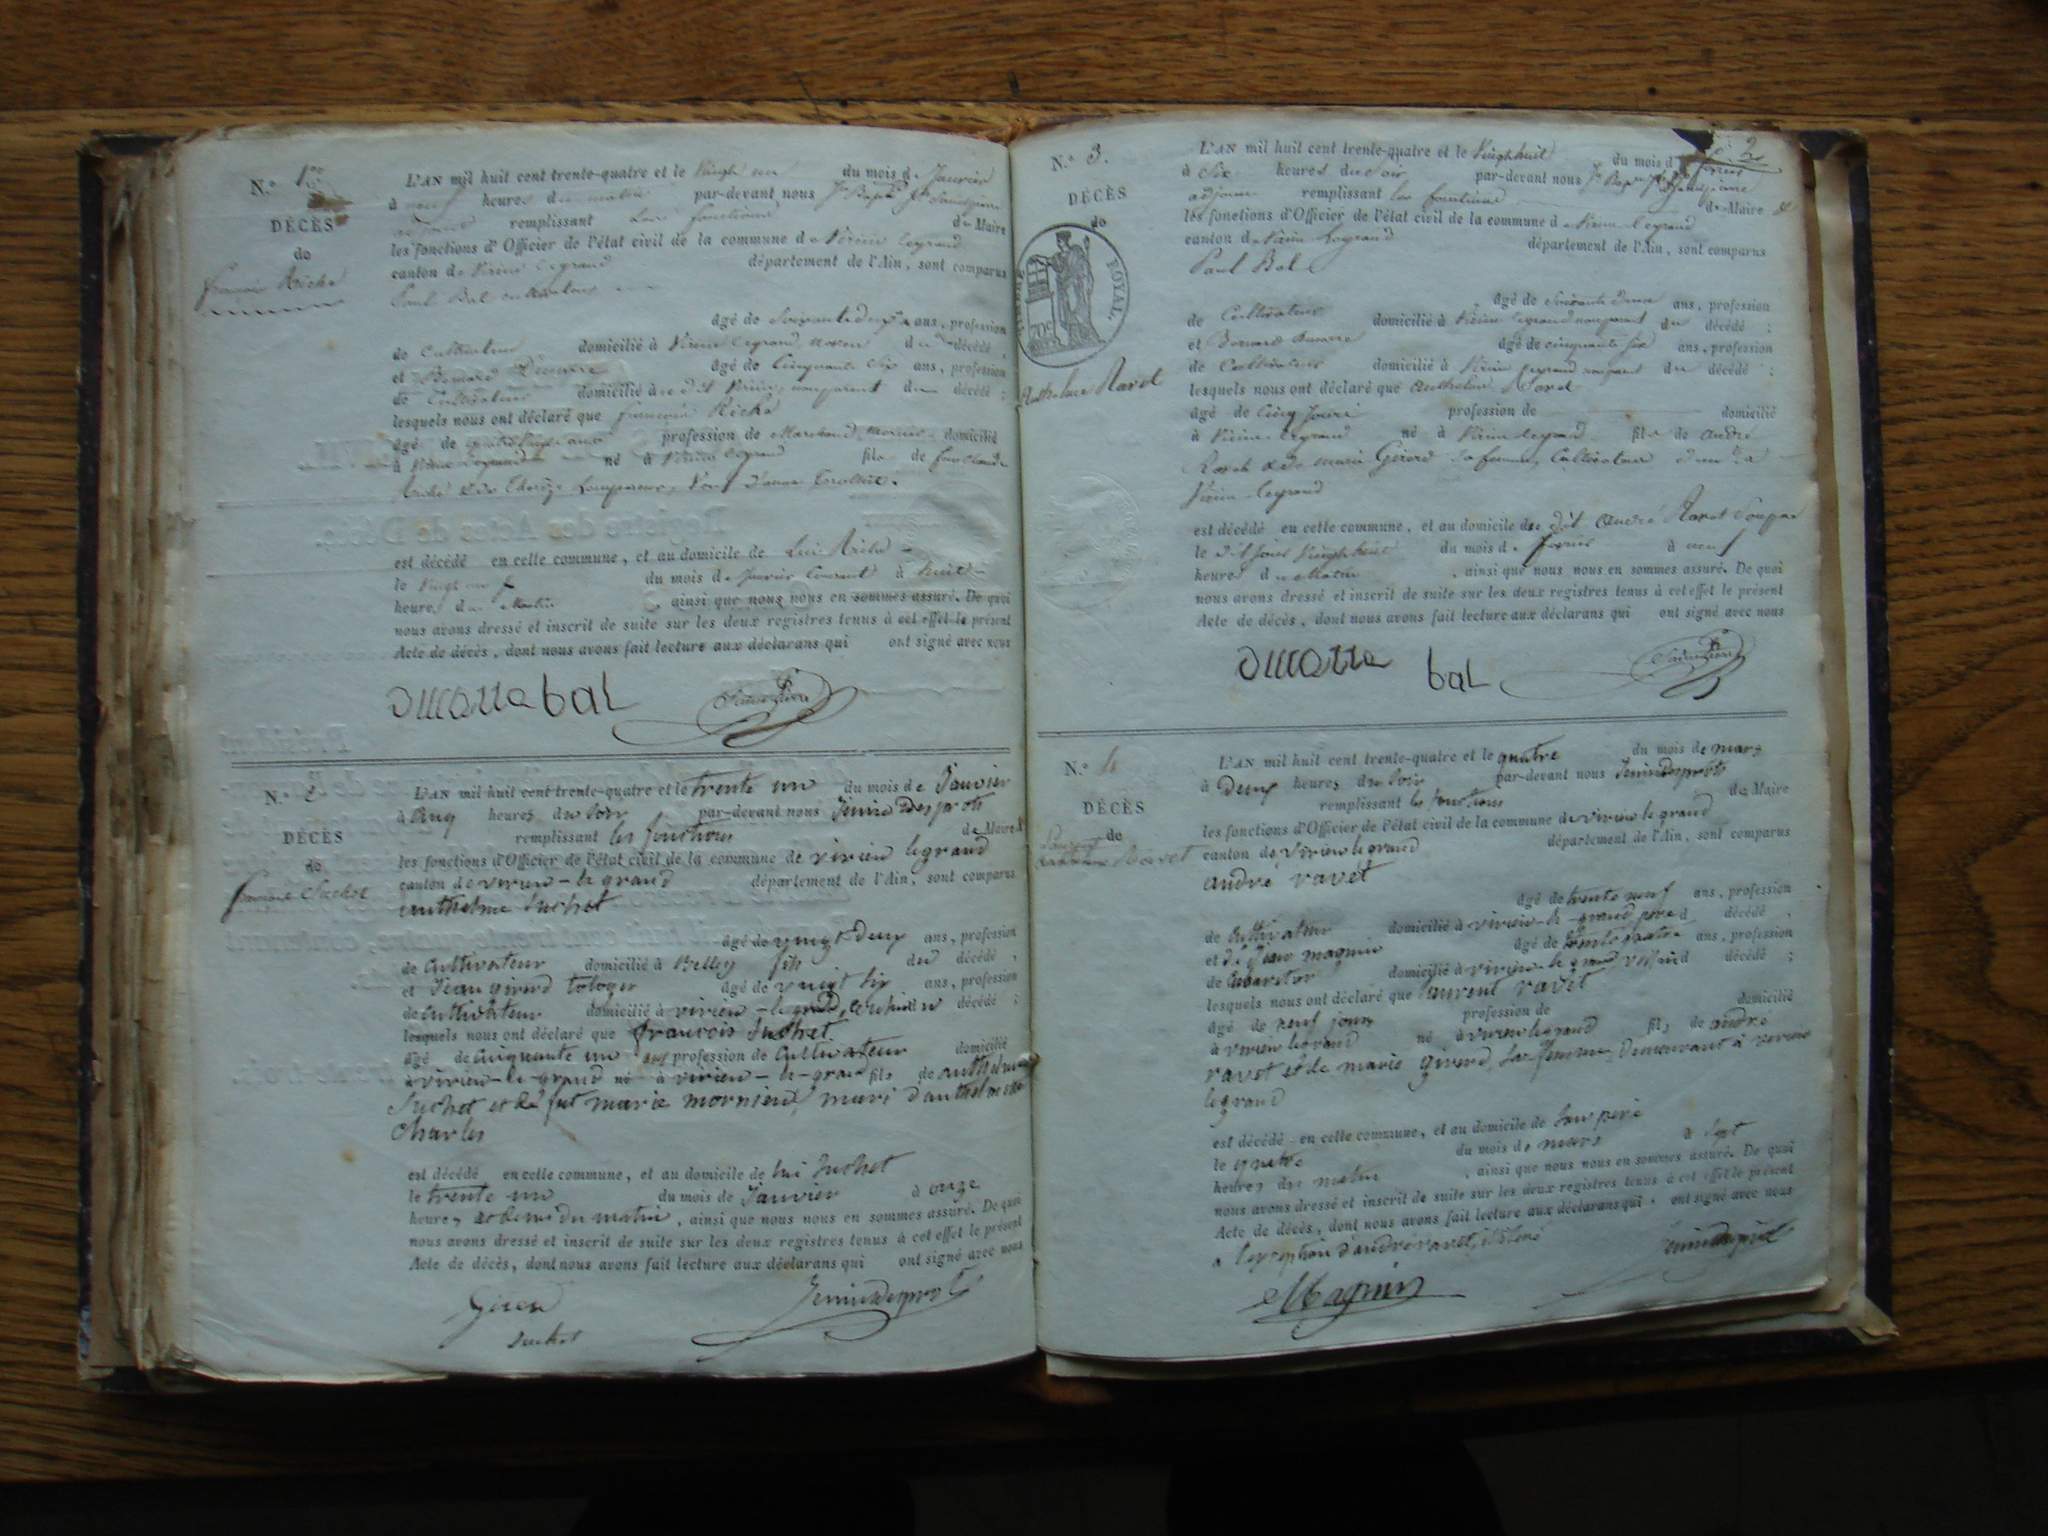 N.º 1er
DÉCÈS
de
françois Riche
L'AN mil huit cent trente-quatre et le Vingt un du mois de Janvier
à neuf heures du matin par-devant nous
adjoint remplissant les fonctions de Maire
les fonctions d'Officier de l'état civil de la commune de Virieu legrand
canton de Virieu legrand département de l'Ain, sont comparus
Paul Bal cultivateur
âgé de Soixante deux ans, profession
de Cultivateur domicilié à Virieu legrand du décédé,
et Bernard âgé de Cinquante Six ans, profession
de Cultivateur domicilié à dit Virieu, du décédé ;
lesquels nous ont déclaré que françois Riche
âgé de profession de Marchand domicilié
à Virieu legrand né à Virieu legrand fils de
Riche & de
est décédé en cette commune, et au domicile de Lui Riche
le Vingt un du mois de Janvier Courant à huit
heures du Matin, ainsi que nous nous en sommes assuré. De quoi
nous avons dressé et inscrit de suite sur les deux registres tenus à cet effet le présent
Acte de décès, dont nous avons fait lecture aux déclarans qui ont signé avec nous
bal
N.º 2
DÉCÈS
de
françois Suchet
L'AN mil huit cent trente-quatre et le trente un du mois de Janvier
à cinq heures du soir par-devant nous Jenin Desprots
remplissant les fonctions de Maire &
les fonctions d'Officier de l'état civil de la commune de virieu legrand
canton de virieu-le grand département de l'Ain, sont comparus
anthelme Suchet
âgé de vingt-Deux ans, profession
de Cultivateur domicilié à Belley fils du décédé,
et Jean girerd âgé de vingt six ans, profession
de Cultivateur domicilié à virieu-le grand, du décédé ;
lesquels nous ont déclaré que françois Suchet
âgé de cinquante un ans profession de Cultivateur domicilié
à virieu-le-grand né à virieu-le-grand fils de anthelme
Suchet et de fut marie mornieux, mari d'anthelmette
Charles
est décédé en cette commune, et au domicile de lui Suchet
le trente un du mois de Janvier à onze
heures et demi du matin, ainsi que nous nous en sommes assuré. De quoi
nous avons dressé et inscrit de suite sur les deux registres tenus à cet effet le présent
Acte de décès, dont nous avons fait lecture aux déclarans qui ont signé avec nous
Jenin Desprots
Suchet
N.º 3.
DÉCÈS
de
ROYAL.
70c
Anthelme Ravet
L'AN mil huit cent trente-quatre et le Vingt huit du mois de février
à Six heures du soir par-devant nous
adjoint remplissant les fonctions de Maire &
les fonctions d'Officier de l'état civil de la commune de Virieu legrand
canton de Virieu legrand département de l'Ain, sont comparus
Paul Bal
âgé de Soixante deux ans, profession
de Cultivateur domicilié à Virieu legrand non parent du décédé ;
et Bernard âgé de cinquante six ans, profession
de Cultivateur domicilié à Virieu legrand non parent du décédé ;
lesquels nous ont déclaré que Anthelme Ravet
âgé de Cinq Jours profession de domicilié
à Virieu legrand né à Virieu legrand fils de André
Ravet & de marie Girerd sa femme, Cultivateur
Virieu legrand
est décédé en cette commune, et au domicile du dit André Ravet Son père
le dit jour Vingt huit du mois de février à neuf
heures du Matin, ainsi que nous nous en sommes assuré. De quoi
nous avons dressé et inscrit de suite sur les deux registres tenus à cet effet le présent
Acte de décès, dont nous avons fait lecture aux déclarans qui ont signé avec nous
bal
N.º 4
DÉCÈS
de
Laurent
Ravet
L'AN mil huit cent trente-quatre et le quatre du mois de mars
à Deux heures du soir par-devant nous Jenin Desprots
remplissant les fonctions de Maire
les fonctions d'Officier de l'état civil de la commune de virieu le grand
canton de virieu le grand département de l'Ain, sont comparus
andré ravet
âgé de trente neuf ans, profession
de Cultivateur domicilié à virieu-le-grand père du décédé,
et de Jean magnin âgé de trente quatre ans, profession
de Cabaretier domicilié à virieu-le grand voisin du décédé ;
lesquels nous ont déclaré que laurent ravet
âgé de neuf jours profession de domicilié
à virieu legrand né à virieu legrand fils de andré
ravet et de marie girerd, sa femme, Demeurant à virieu
legrand
est décédé en cette commune, et au domicile de son père
le quatre du mois de mars à sept
heures du matin, ainsi que nous nous en sommes assuré. De quoi
nous avons dressé et inscrit de suite sur les deux registres tenus à cet effet le présent
Acte de décès, dont nous avons fait lecture aux déclarans qui ont signé avec nous
a l'exception d'andré ravet,
Magnin